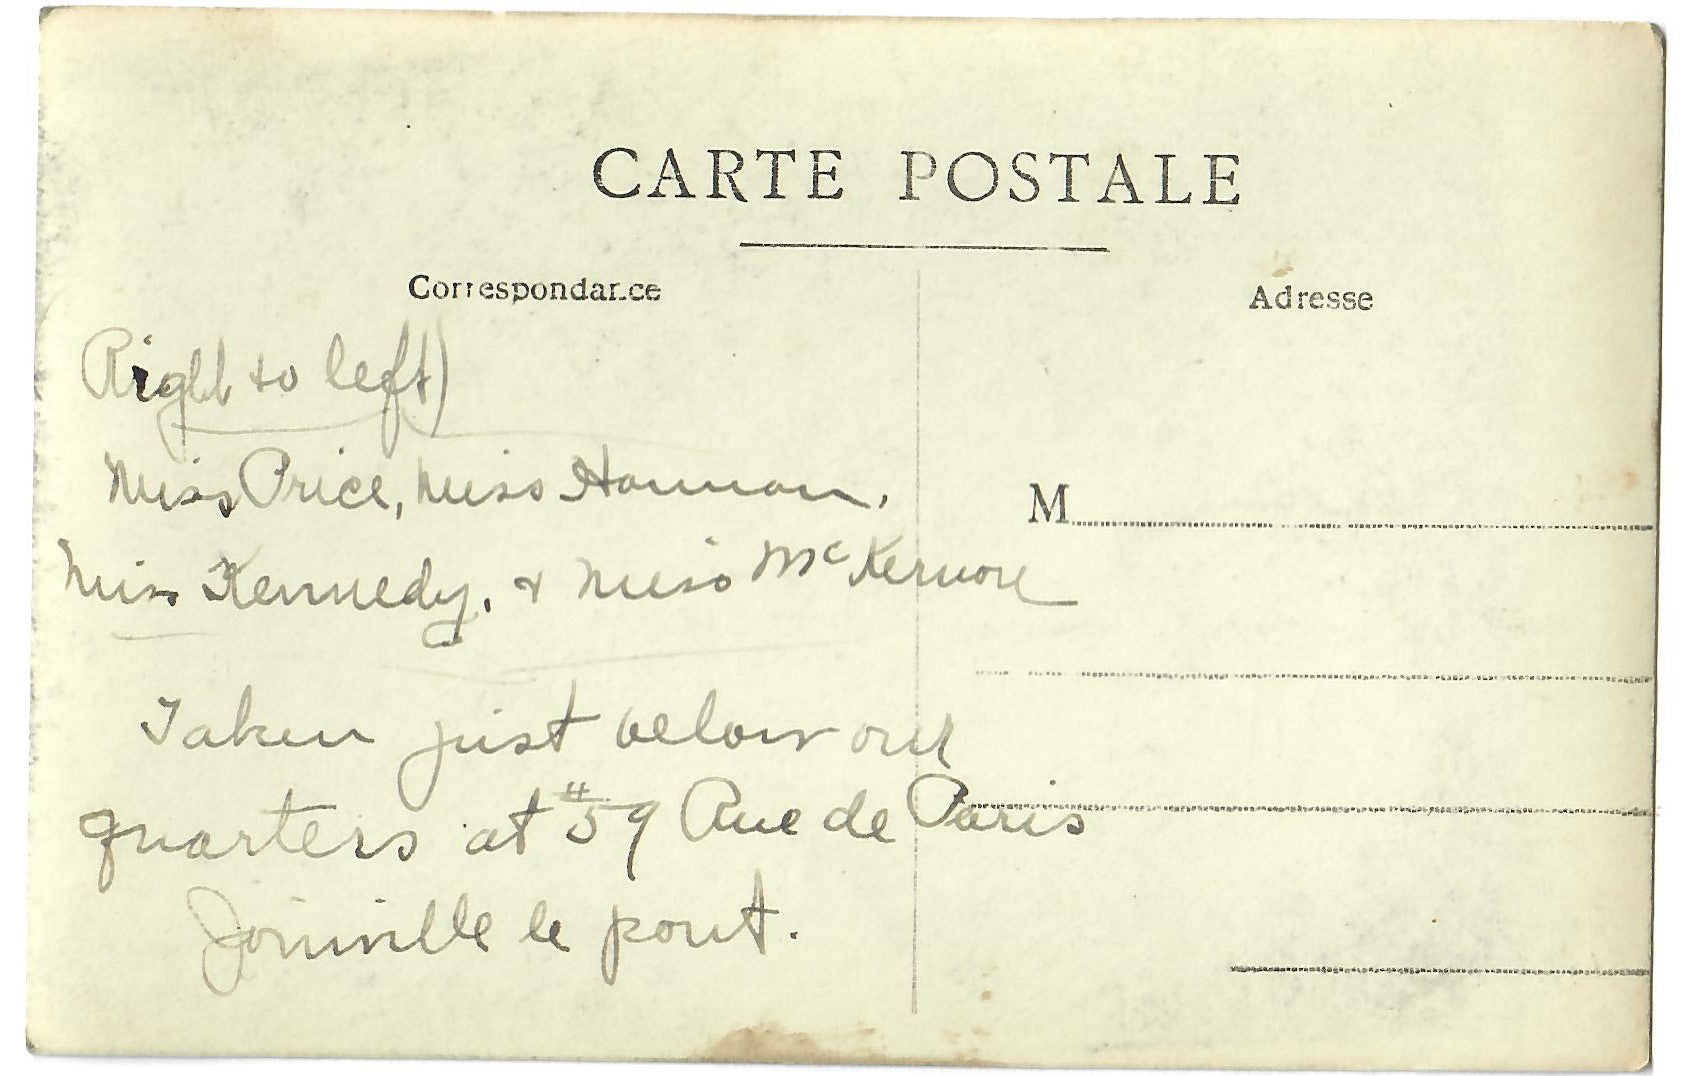 CARTE POSTALE
Correspondance
Adresse
Right to left)
Miss Price, Miss Hannan,
Miss Kennedy, & Miss McKernon
M
Taken just below our
quarters at #59 Rue de Paris
Joinville le pont.